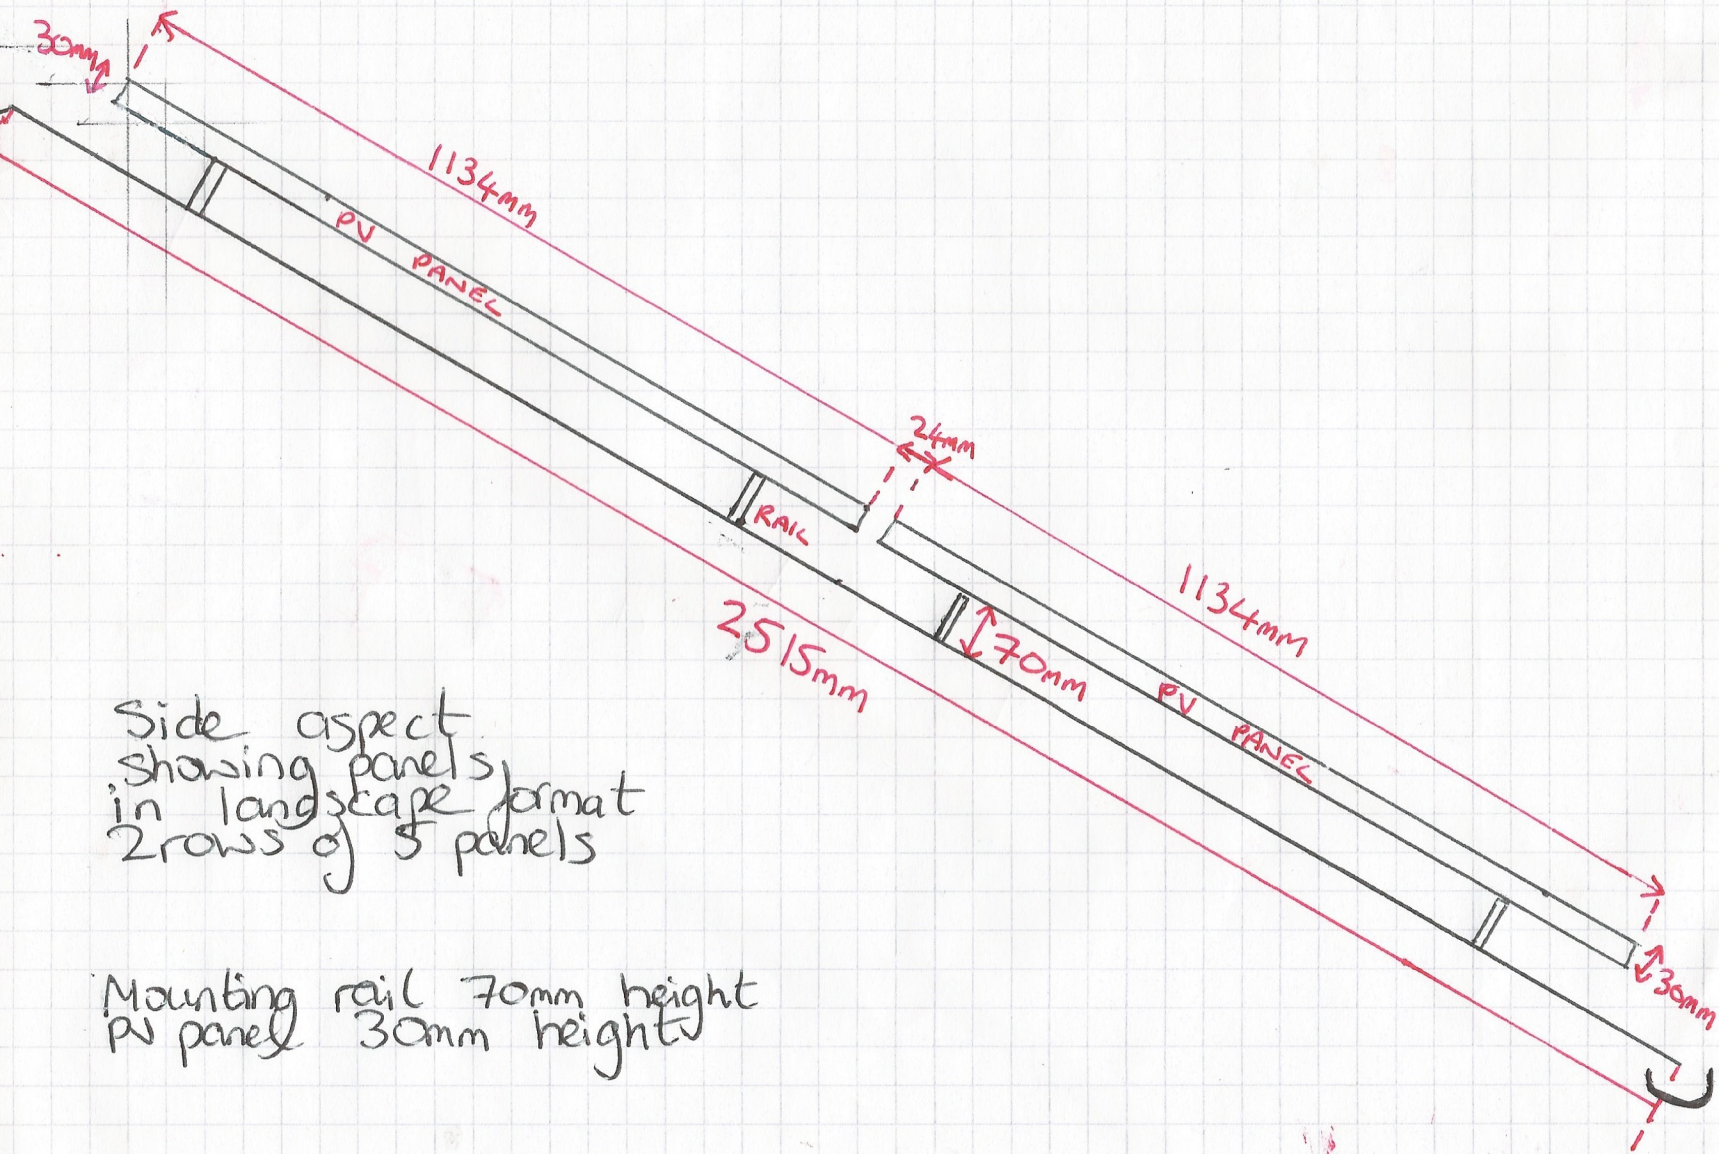 30mm
1134mm
PV PANEL
24mm
RAIL
1134mm
70mm
2515mm
PV PANEL
30mm
Side aspect
showing panels
in landscape format
2 rows of 5 panels
Mounting rail 70mm height
PV panel 30mm height